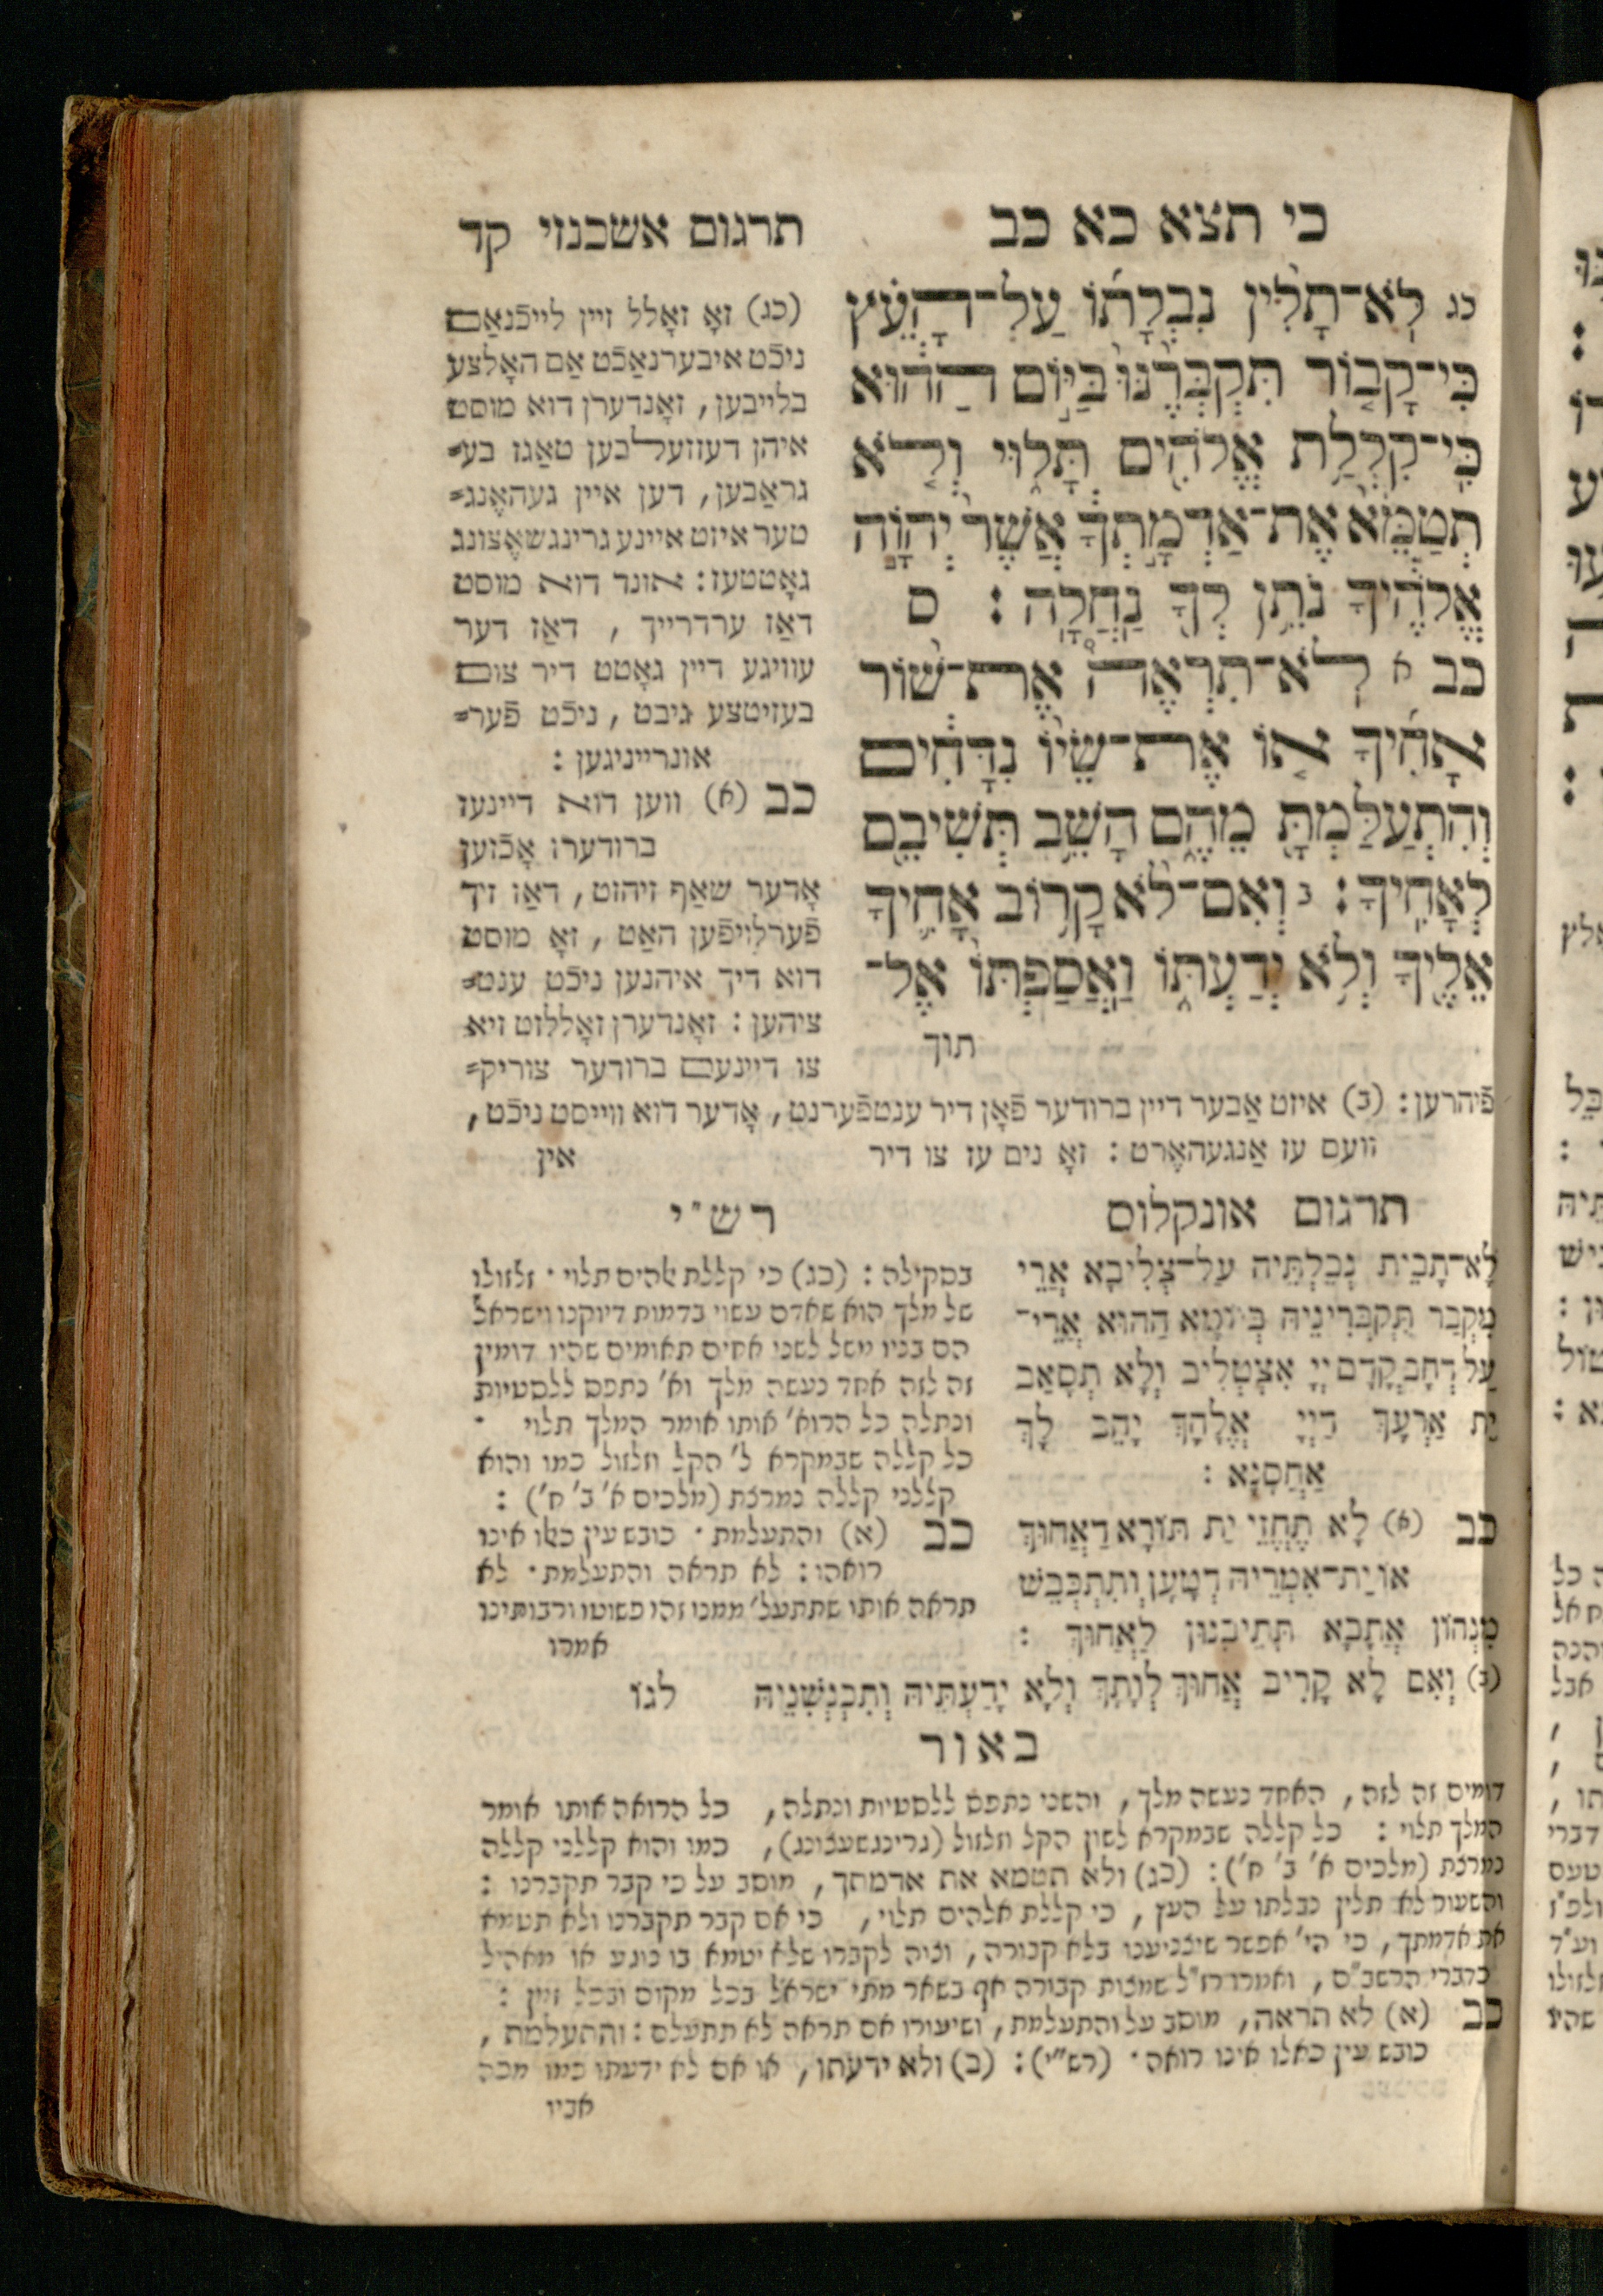 כי תצא כא כב
תרגום אשכנזי קד
כג לֹא־תָלִין נִבְלָתוֹ עַל־הָעֵץ
כִּי־קָבוֹר תִּקְבְּרֶנּוּ בַּיּוֹם הַהוּא
כִּי־קִלְלַת אֱלֹהִים תָּלוּי וְלֹא
תְטַמֵּא אֶת־אַדְמָתְךָ אֲשֶׁר יְהוָֹה
אֱלֹהֶיךָ נֹתֵן לְךָ נַחֲלָה : ס
כב א לֹא־תִרְאֶה אֶת־שׁוֹר
אָחִיךָ אוֹ אֶת־שֵׂיוֹ נִדָּחִים
וְהִתְעַלַּמְתָּ מֵהֶם הָשֵׁב תְּשִׁיבֵם
לְאָחִיךָ : ב וְאִם־לֹא קָרוֹב אָחִיךָ
אֵלֶיךָ וְלֹא יְדַעְתּוֹ וַאֲסַפְתּוֹ אֶל־
תוך
(כג) זאָ זאָלל זיין לייכֿנאַם
ניכֿט איבערנאַכֿט אַם האָלצע
בלייבען, זאָנדערן דוא מוסט
איהן דעזזעלבען טאַגז בע=
גראַבען, דען איין געהאֶנג=
טער איזט איינע גרינגשאֶצונג
גאָטטעז: אונד דוא מוסט
דאַז ערדרייך , דאַז דער
עוויגע דיין גאָטט דיר צום
בעזיטצע גיבט , ניכֿט פֿער=
אונרייניגען :
כב (א) ווען דוא דיינעז
ברודערז אָכֿזען
אָדער שאַף זיהזט, דאַז זיך
פֿערלויפֿען האַט , זאָ מוסט
דוא דיך איהנען ניכֿט ענט=
ציהען : זאָנדערן זאָללזט זיא
צו דיינעם ברודער צוריק=
פֿיהרען: (ב) איזט אַבער דיין ברודער פֿאָן דיר ענטפֿערנט, אָדער דוא ווייסט ניכֿט,
וועם עז אַנגעהאֶרט : זאָ נים עז צו דיר אין
תרגום אונקלוס
לָא־תָבֵית נְבֵלְתֵּיהּ עַל־צְלִיבָא אֲרֵי
מִקְבַר תִּקְבְּרִינֵיהּ בְּיוֹמָא הַהוּא אֲרֵי־
עַל דְּחָב קֳדָם יְיָ אִצְטְלִיב וְלָא תְסָאַב
יַת אַרְעָךְ דַּיְיָ אֱלָהָךְ יָהֵב לָךְ
אַחֲסָנָא :
כב (א) לָא תֶחֱזֵי יַת תּוֹרָא דַאֲחוּךְ
אוֹ יַת־אִמְּרֵיהּ דְּטָעַן וְתִתְכְּבֵשׁ
מִנְּהוֹן אֲתָבָא תְּתִיבִנּוּן לַאֲחוּךְ :
(ב) וְאִם לָא קָרִיב אֲחוּךְ לְוָתָךְ וְלָא יָדַעְתֵּיהּ וְתִכְנְשִׁנֵיהּ לגו
רש"י
בסקילה : (כג) כי קללת אלהים תלוי · זלזולו
של מלך הוא שאדם עשוי בדמות דיוקנו וישראל
הם בניו משל לשני אחים תאומים שהיו דומין
זה לזה אחד נעשה מלך וא' נתפס ללסטיות
ונתלה כל הרוא' אותו אומר המלך תלוי ·
כל קללה שבמקרא ל' הקל וזלזול כמו והוא
קללני קללה נמרצת (מלכים א' ב' ח') :
כב (א) והתעלמת · כובש עין כאלו אינו
רואהו : לא תראה והתעלמת · לא
תראה אותו שתתעל' ממנו זהו פשוטו ורבותינו
אמרו
באור
דומים זה לזה, האחד נעשה מלך, והשני נתפס ללסטיות ונתלה, כל הרואה אותו אומר
המלך תלוי : כל קללה שבמקרא לשון הקל וזלזול (גרינגשעצונג), כמו והוא קללני קללה
נמרצת (מלכים א' ב' ח') : (כג) ולא תטמא את אדמתך, מוסב על כי קבר תקברנו :
והשעור לא תלין נבלתו על העץ, כי קללת אלהים תלוי, כי אם קבר תקברנו ולא תטמא
את אדמתך, כי הי' אפשר שיצניענו בלא קבורה, וצוה לקברו שלא יטמא בו נוגע או מאהיל
כדברי הרשב"ם, ואמרו רז"ל שמצות קבורה אף בשאר מתי ישראל בכל מקום ובכל זמן :
כב (א) לא תראה, מוסב על והתעלמת, ושיעורו אם תראה לא תתעלם : והתעלמת,
כובש עין כאלו אינו רואה · (רש"י) : (ב) ולא ידעתו, או אם לא ידעתו כמו מכה
אביו